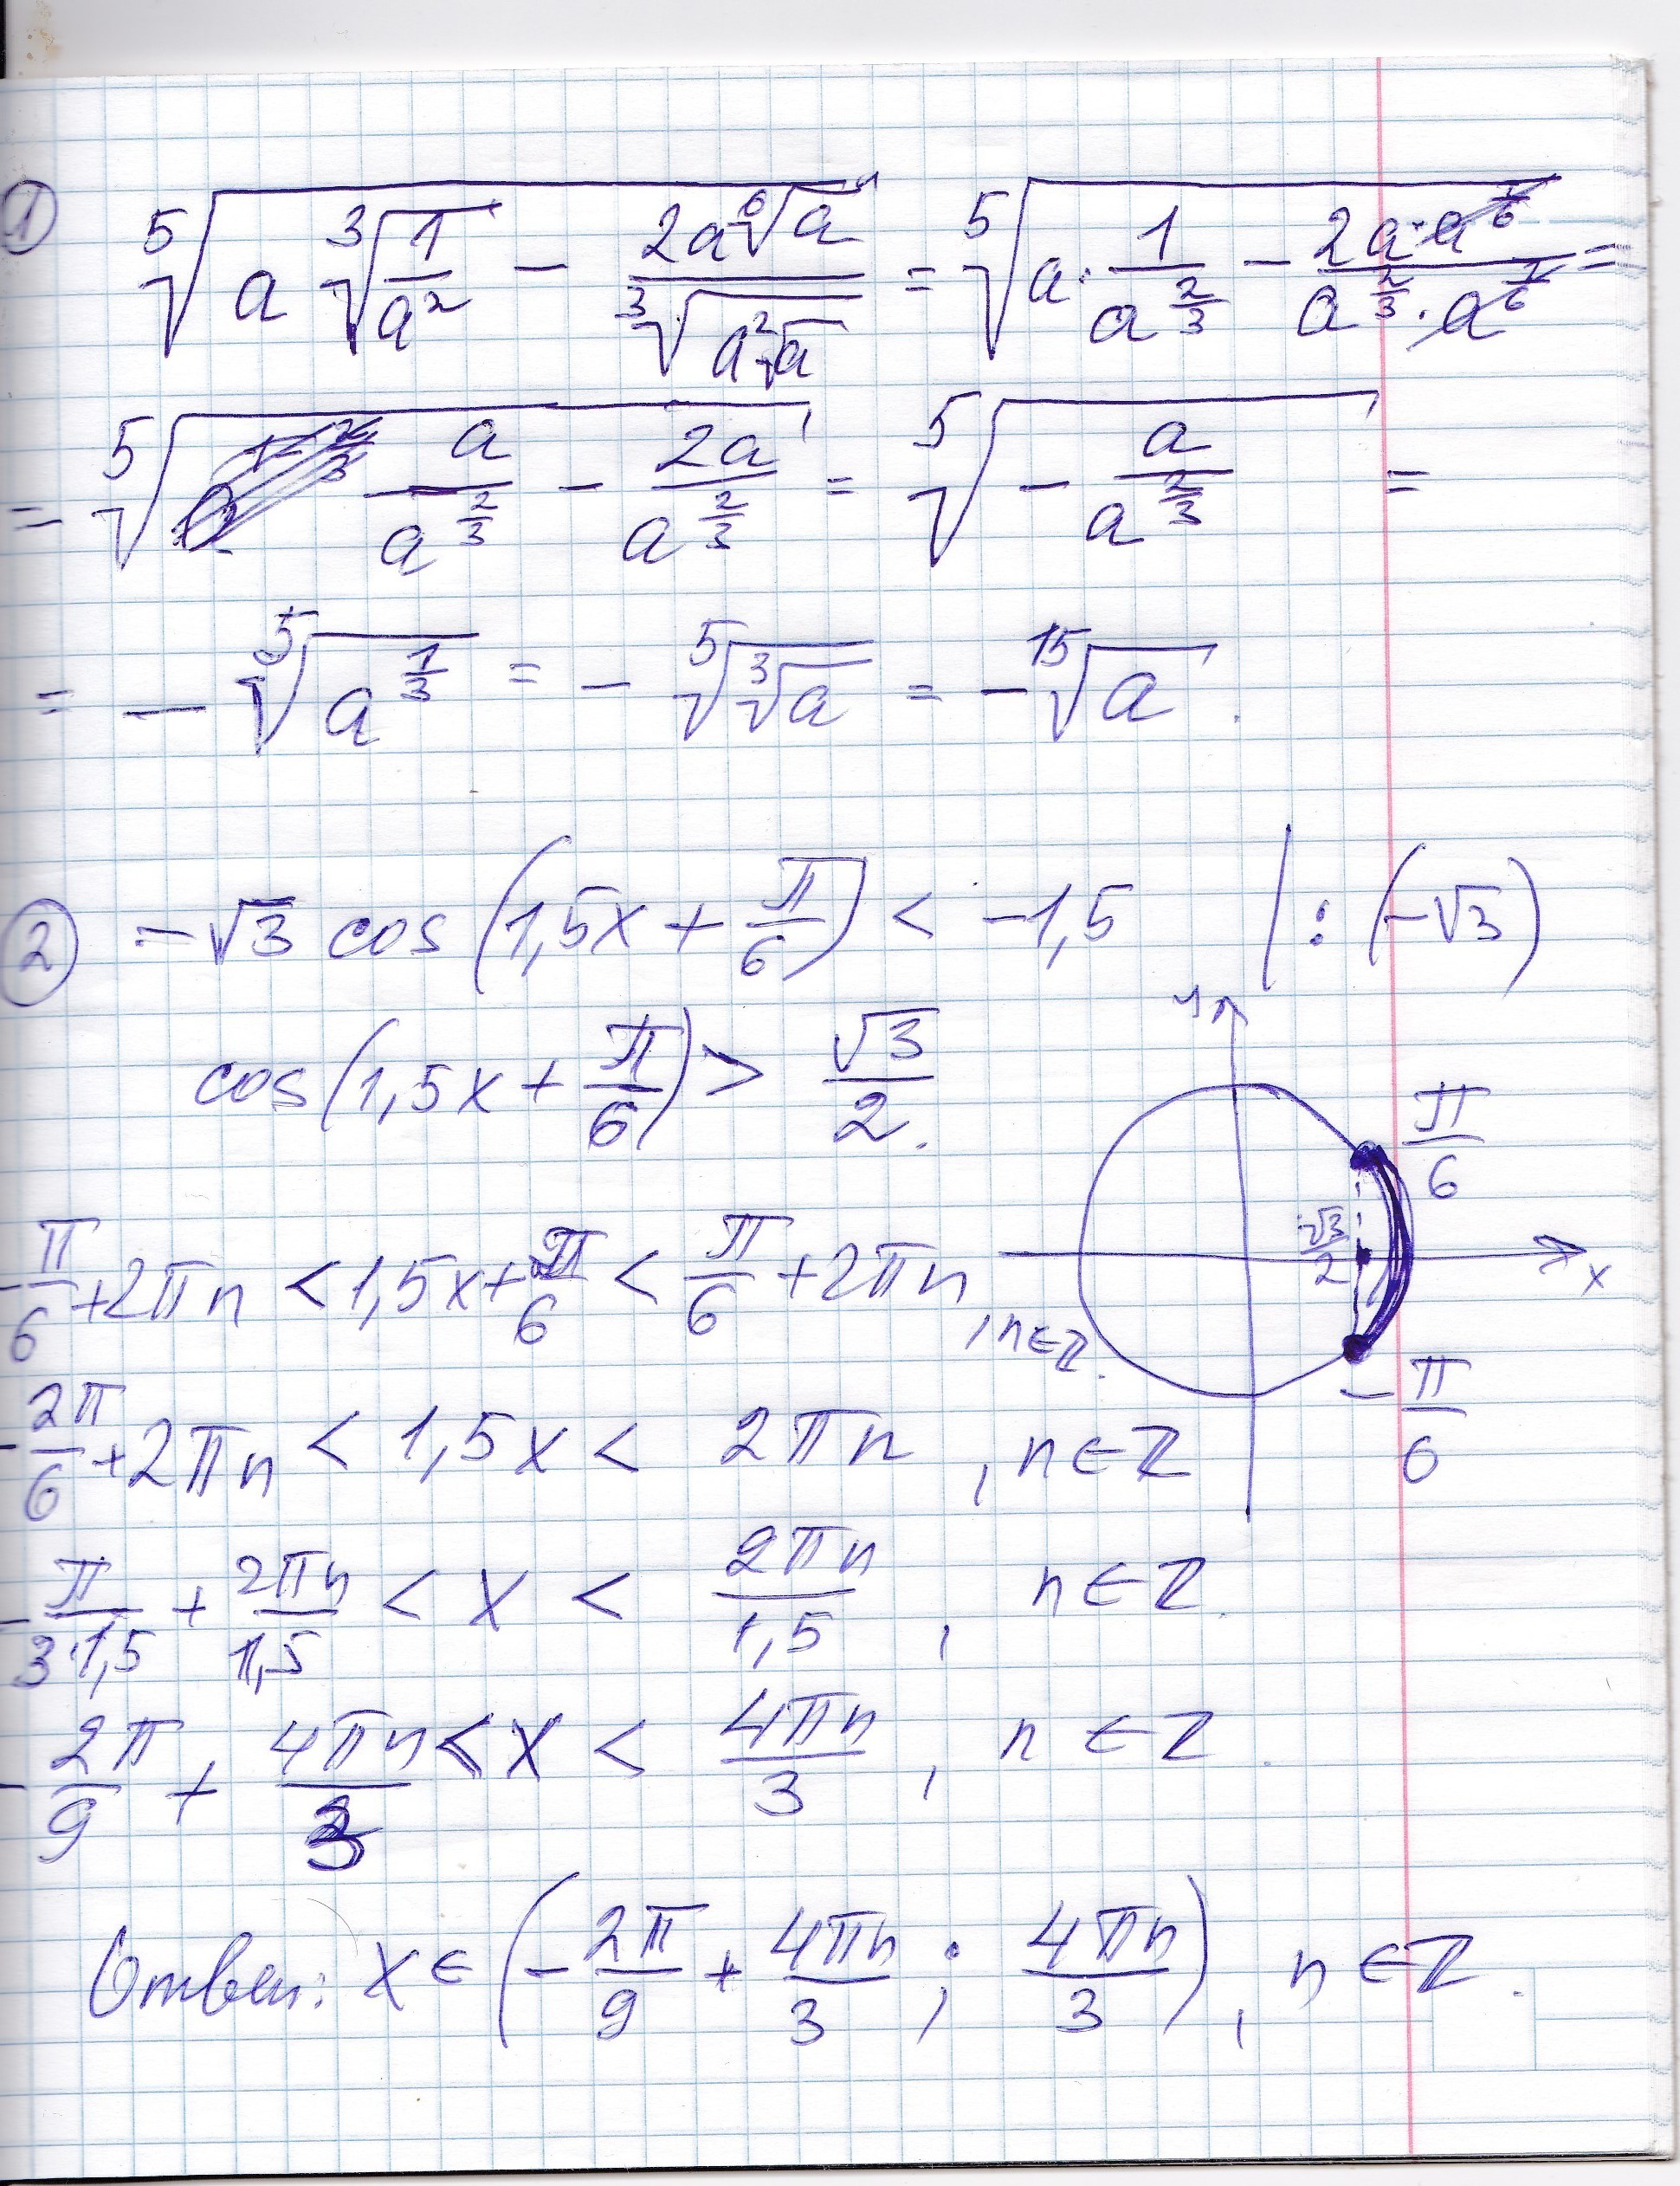 ① ⁵√(a ³√(1/a²) − 2a ⁶√a / ³√(a²√a)) = ⁵√(a · 1/a^(2/3) − 2a · a^(1/6) / (a^(2/3) · a^(1/6))) =
= ⁵√(a/a^(2/3) − 2a/a^(2/3)) = ⁵√(− a/a^(2/3)) =
= − ⁵√(a^(1/3)) = − ⁵√(³√a) = − ¹⁵√a.
② −√3 cos(1,5x + π/6) < −1,5 | : (−√3)
cos(1,5x + π/6) > √3/2.
y
π/6
√3/2
x
−π/6
−π/6 + 2πn < 1,5x + π/6 < π/6 + 2πn, n∈Z.
−2π/6 + 2πn < 1,5x < 2πn, n∈Z
−π/(3·1,5) + 2πn/1,5 < x < 2πn/1,5, n∈Z.
−2π/9 + 4πn/3 < x < 4πn/3, n∈Z.
Ответ: x∈(−2π/9 + 4πn/3; 4πn/3), n∈Z.